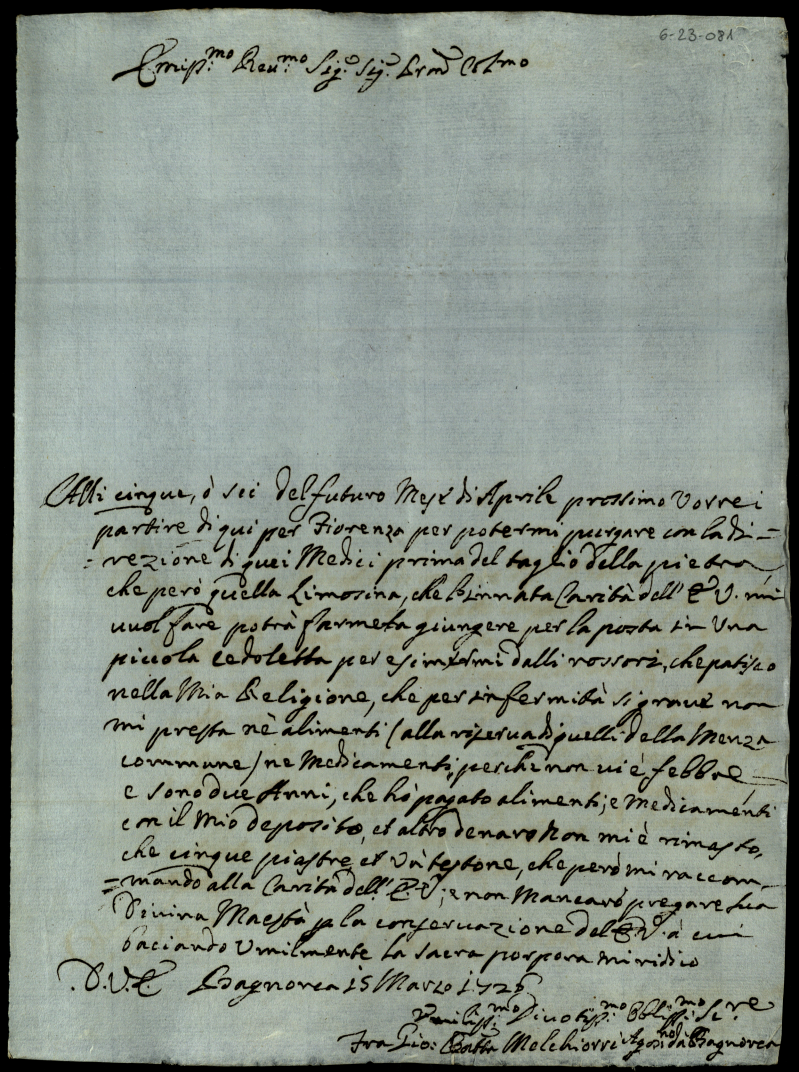 6-23-081
Emiss.mo Reu.mo Sig.e Sig.e Prõn Col.mo
Alli cinque, ò sei del futuro Mese di Aprile prossimo Vorrei
partire di qui per Fiorenza per potermi purgare con la di=
=rezione di quei Medici prima del taglio della pietra
che però quella Limosina, che l'innata Carità dell' E. V. mi
vuol fare potrà farmela giungere per la posta in Una
piccola cedoletta per esimermi dalli rossori, che patisco
nella Mia Religione, che per infermità si graue non
mi presta nè alimenti (alla riserua di quelli della Menza
commune) ne Medicamenti, perche non ui è febbre,
e sono due Anni, che hò pagato alimenti, e Medicamenti
con il Mio deposito, et altro denaro Non mi è rimasto,
che cinque piastre et Un testone, che però mi raccom=
=mando alla Carità dell' E. V.; e non Mancarò pregare Sua
Divina Maestà p la conseruazione dell' E. V. à cui
baciando Umilmente la sacra porpora mi ridico
D. V. E. Bagnorea 15 Marzo 172
Umiliss.mo Diuotiss.mo Obblig.mo Se.re
Fra Gio: Batta Melchiorri Agos.no da Bagnorea